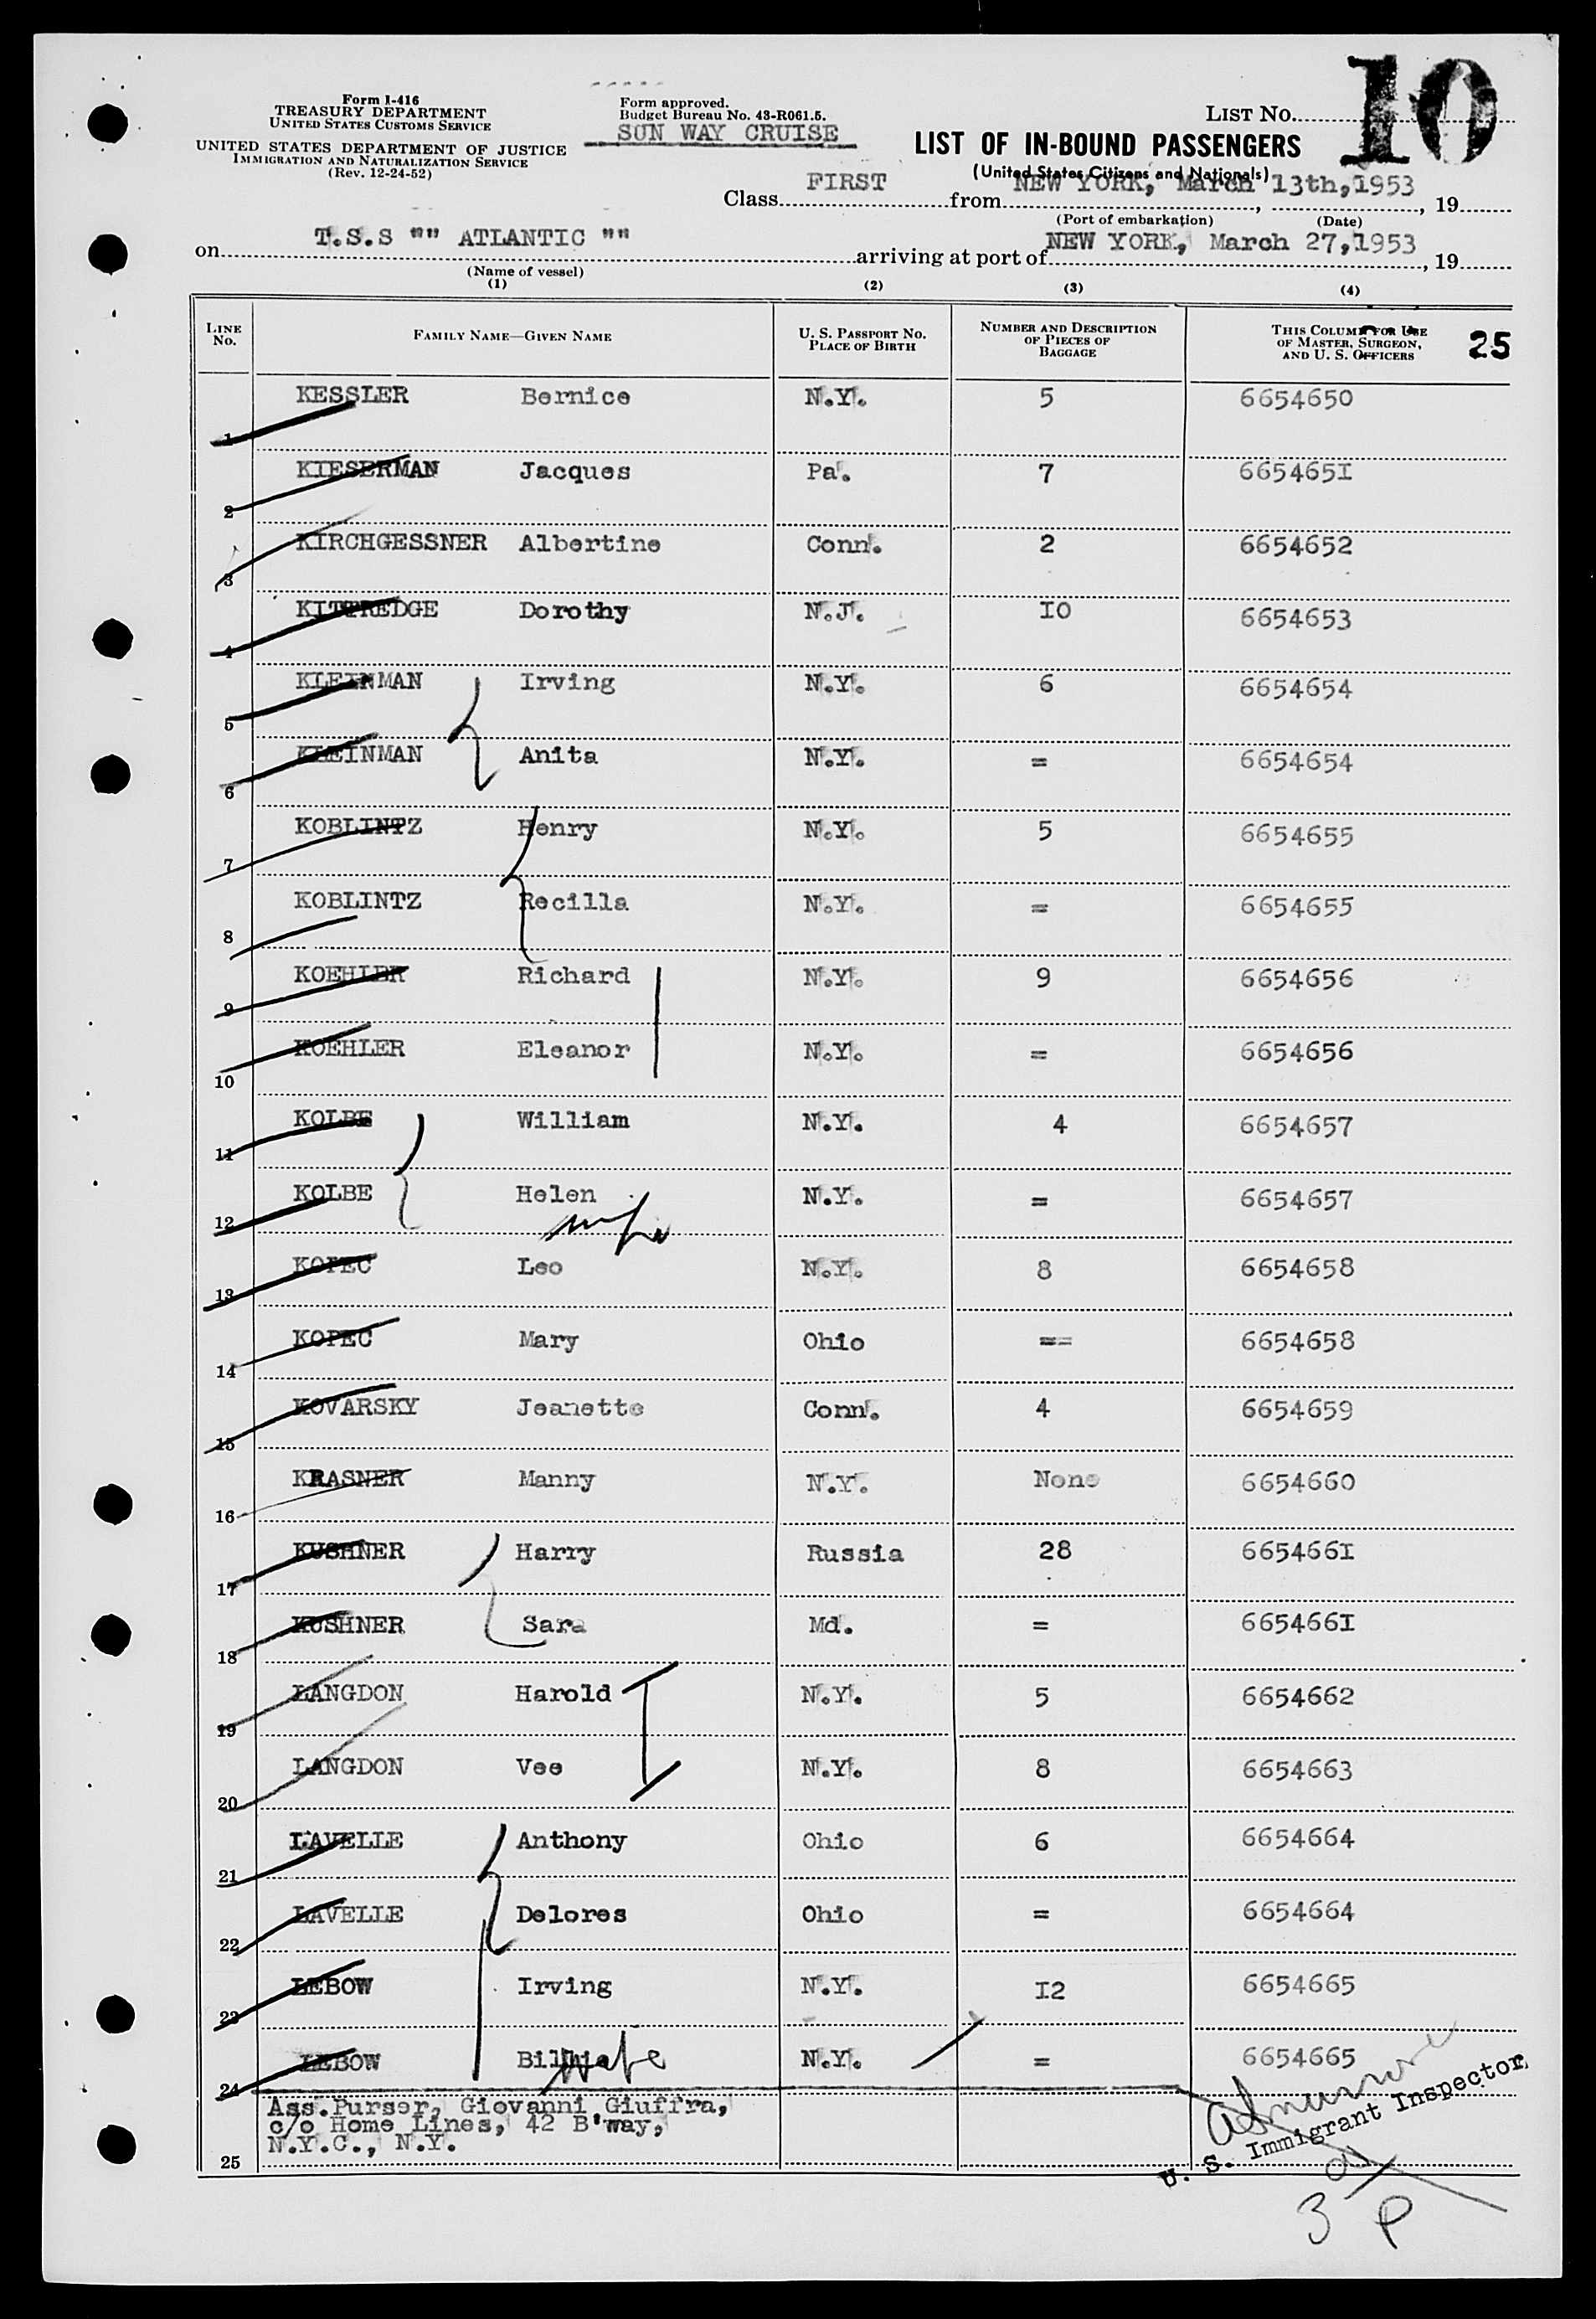 10
Form I-416
TREASURY DEPARTMENT
UNITED STATES CUSTOMS SERVICE
UNITED STATES DEPARTMENT OF JUSTICE
IMMIGRATION AND NATURALIZATION SERVICE
(Rev. 12-24-52)
Form approved.
Budget Bureau No. 43-R061.5.
SUN WAY CRUISE
LIST NO.
LIST OF IN-BOUND PASSENGERS
(United States Citizens and Nationals)
Class FIRST from NEW YORK, March 13th, 1953, 19
(Port of embarkation) (Date)
on T.S.S "" ATLANTIC "" arriving at port of NEW YORK, March 27, 1953, 19
(Name of vessel)
(1) (2) (3) (4)
LINE NO. FAMILY NAME—GIVEN NAME U. S. PASSPORT NO. PLACE OF BIRTH NUMBER AND DESCRIPTION OF PIECES OF BAGGAGE THIS COLUMN FOR USE OF MASTER, SURGEON, AND U. S. OFFICERS 25
1 KESSLER Bernice N.Y. 5 6654650
2 KIESERMAN Jacques Pa. 7 665465I
3 KIRCHGESSNER Albertine Conn. 2 6654652
4 KITTREDGE Dorothy N.J. I0 6654653
5 KLEINMAN Irving N.Y. 6 6654654
6 KLEINMAN Anita N.Y. = 6654654
7 KOBLINTZ Henry N.Y. 5 6654655
8 KOBLINTZ Recilla N.Y. = 6654655
9 KOEHLER Richard N.Y. 9 6654656
10 KOEHLER Eleanor N.Y. = 6654656
11 KOLBE William N.Y. 4 6654657
12 KOLBE Helen N.Y. = 6654657
13 KOPEC Leo N.Y. 8 6654658
14 KOPEC Mary Ohio == 6654658
15 KOVARSKY Jeanette Conn. 4 6654659
16 KRASNER Manny N.Y. None 6654660
17 KUSHNER Harry Russia 28 665466I
18 KUSHNER Sara Md. = 665466I
19 LANGDON Harold N.Y. 5 6654662
20 LANGDON Vee N.Y. 8 6654663
21 LAVELLE Anthony Ohio 6 6654664
22 LAVELLE Delores Ohio = 6654664
23 LEBOW Irving N.Y. I2 6654665
24 LEBOW Billie wife N.Y. = 6654665
Ass.Purser, Giovanni Giuffra,
c/o Home Lines, 42 B'way,
N.Y.C., N.Y.
25
U. S. Immigrant Inspector
3 P